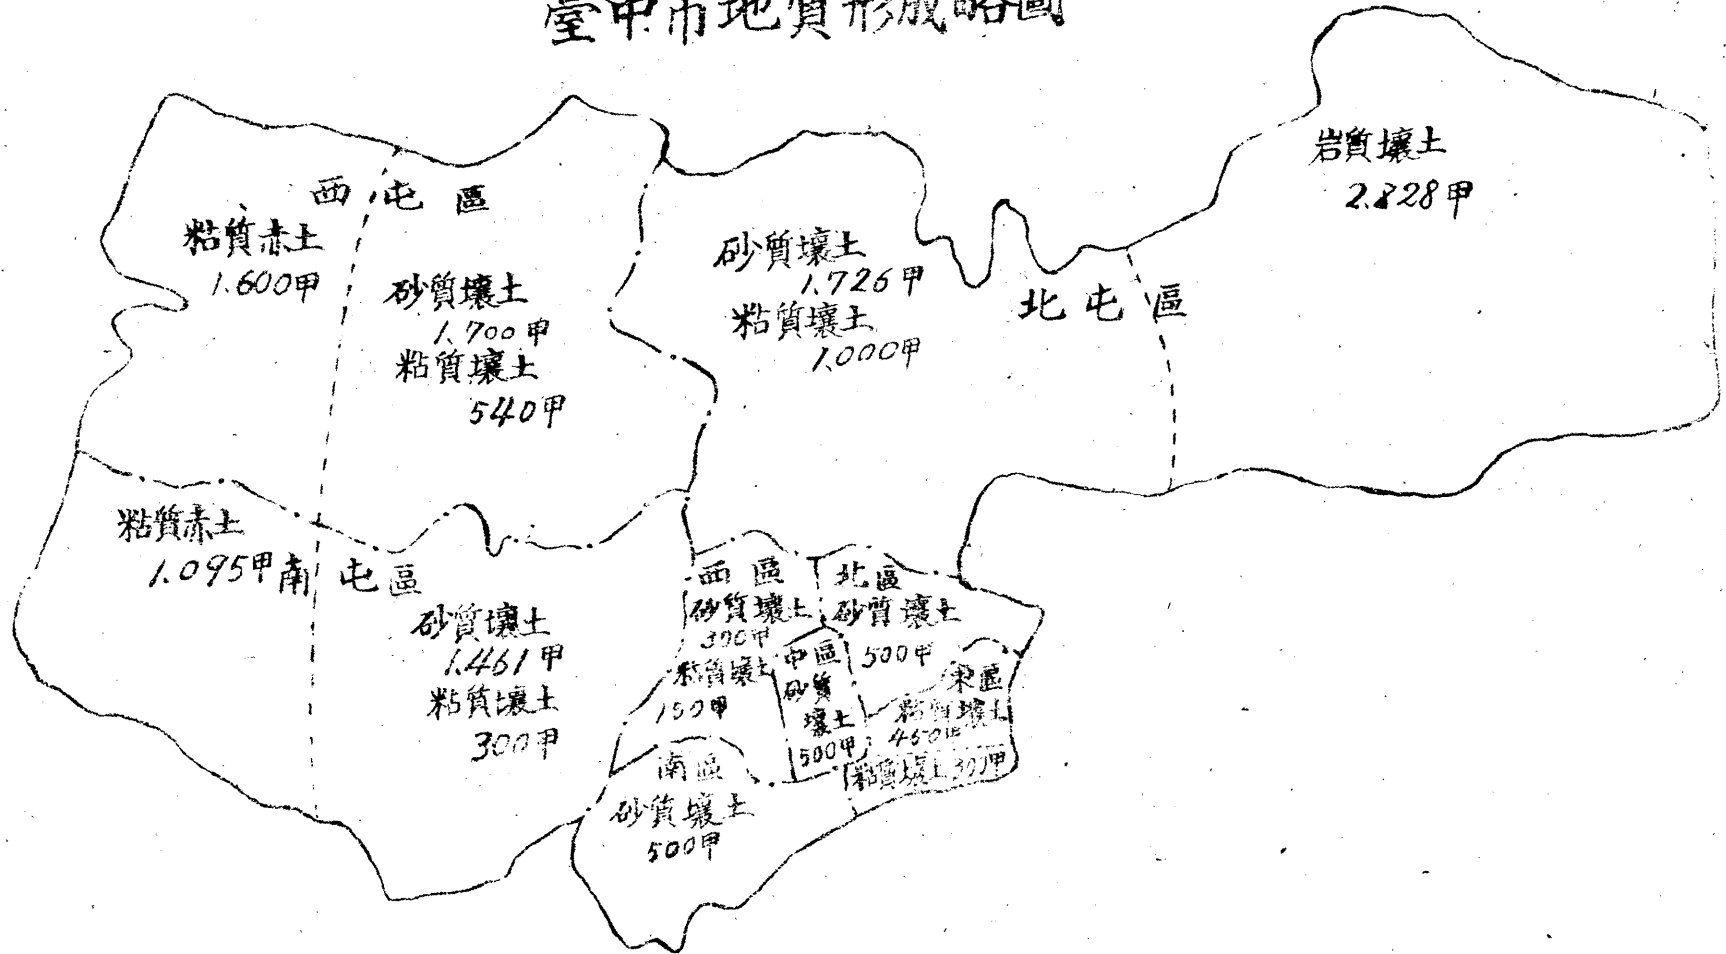 臺中市地質形成略圖
岩質壤土
2.828甲
西屯區
粘質赤土
1.600甲
砂質壤土
1.700甲
粘質壤土
540甲
砂質壤土
1.726甲
粘質壤土
1.000甲
北屯區
粘質赤土
1.095甲
南屯區
砂質壤土
1.461甲
粘質壤土
300甲
西區
砂質壤土
300甲
粘質壤土
150甲
北區
砂質壤土
500甲
中區
砂質
壤土
500甲
東區
粘質壤土
450甲
粘質壤土300甲
南區
砂質壤土
500甲